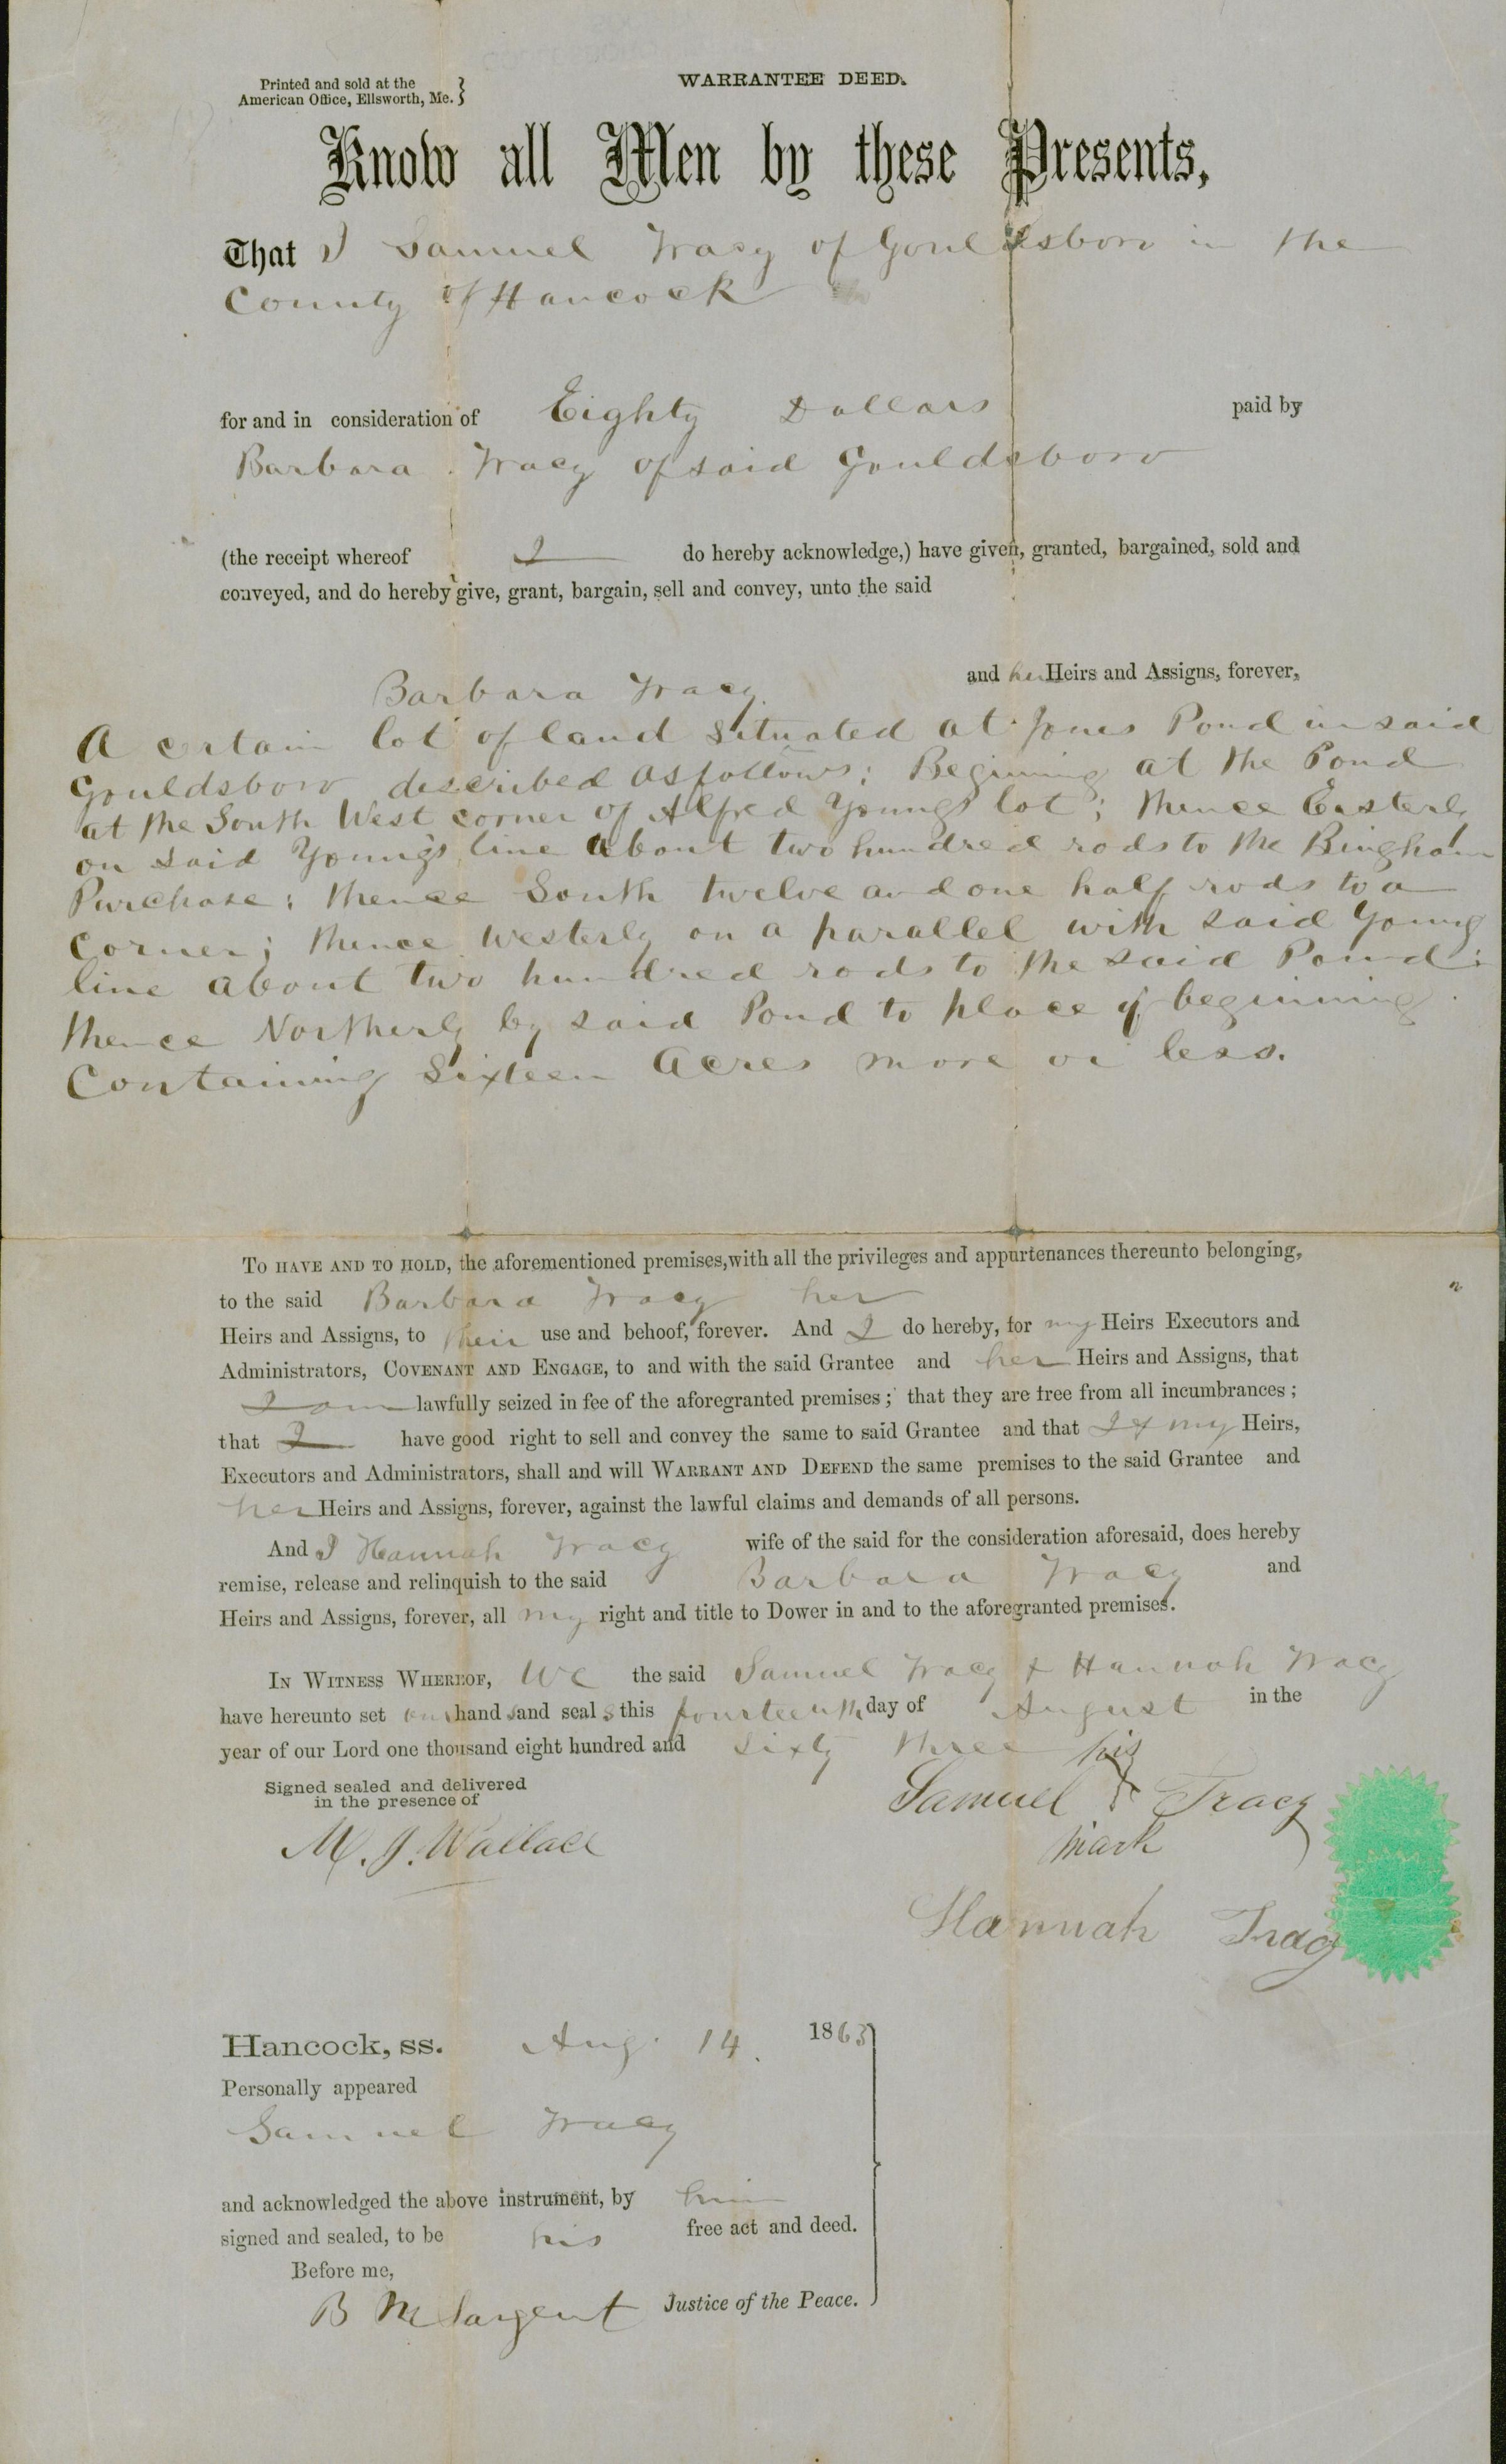 Printed and sold at the
American Office, Ellsworth, Me. }
WARRANTEE DEED.
Know all Men by these Presents,
That I Samuel Tracy of Gouldsboro in the
County of Hancock
for and in consideration of Eighty Dollars paid by
Barbara Tracy of said Gouldsboro
(the receipt whereof I do hereby acknowledge,) have given, granted, bargained, sold and
conveyed, and do hereby give, grant, bargain, sell and convey, unto the said
Barbara Tracy and her Heirs and Assigns, forever,
A certain lot of land situated at Jones Pond in said
Gouldsboro described as follows; Begining at the Pond
at the South West corner of Alfred Youngs lot; thence Easterly
on said Young's line about two hundred rods to the Bingham
Purchase; thence South twelve and one half rods to a
corner; thence Westerly on a parallel with said Young
line about two hundred rods to the said Pond;
thence Northerly by said Pond to place of beginning
Containing Sixteen Acres more or less.
TO HAVE AND TO HOLD, the aforementioned premises, with all the privileges and appurtenances thereunto belonging,
to the said Barbara Tracy her
Heirs and Assigns, to their use and behoof, forever. And I do hereby, for my Heirs Executors and
Administrators, COVENANT AND ENGAGE, to and with the said Grantee and her Heirs and Assigns, that
I am lawfully seized in fee of the aforegranted premises; that they are free from all incumbrances;
that I have good right to sell and convey the same to said Grantee and that I & my Heirs,
Executors and Administrators, shall and will WARRANT AND DEFEND the same premises to the said Grantee and
her Heirs and Assigns, forever, against the lawful claims and demands of all persons.
And I Hannah Tracy wife of the said for the consideration aforesaid, does hereby
remise, release and relinquish to the said Barbara Tracy and
Heirs and Assigns, forever, all my right and title to Dower in and to the aforegranted premises.
IN WITNESS WHEREOF, We the said Samuel Tracy & Hannah Tracy
have hereunto set our hand s and seal s this fourteenth day of August in the
year of our Lord one thousand eight hundred and sixty three
Signed sealed and delivered
in the presence of
M. J. Wallace
his
Samuel X Tracy
mark
Hannah Tracy
Hancock, ss. Aug. 14. 1863
Personally appeared
Samuel Tracy
and acknowledged the above instrument, by him
signed and sealed, to be his free act and deed.
Before me,
B M Sargent Justice of the Peace.